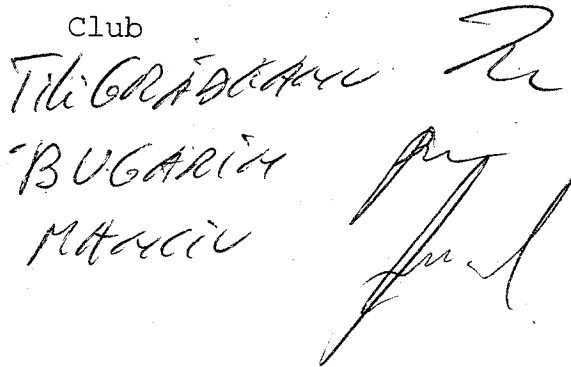 Club
TILI GRĂDEANU
BUGARIN
MANCIU